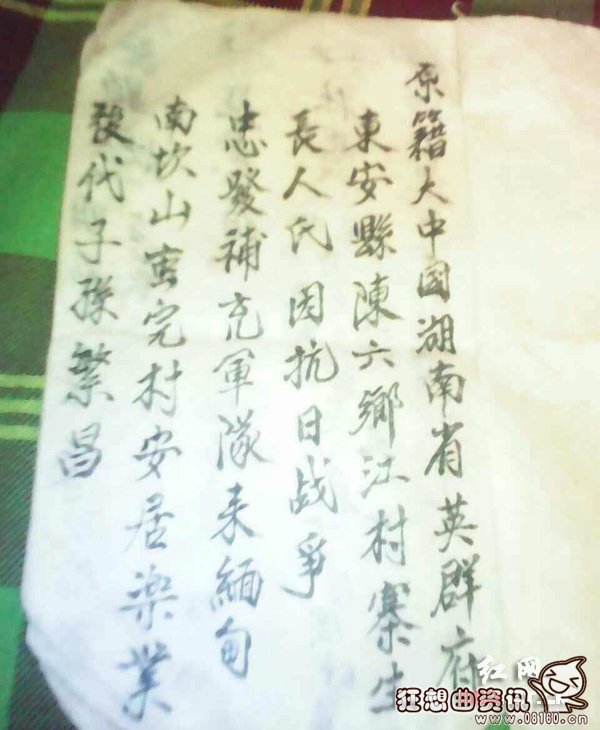 原籍大中國湖南省英群府
東安縣陳六鄉江村寨生
長人氏因抗日战爭
忠發補充軍隊来緬甸
南坎山蛮完村安居楽業
後代子孫繁昌
红网
狂想曲资讯
www.08160.cn